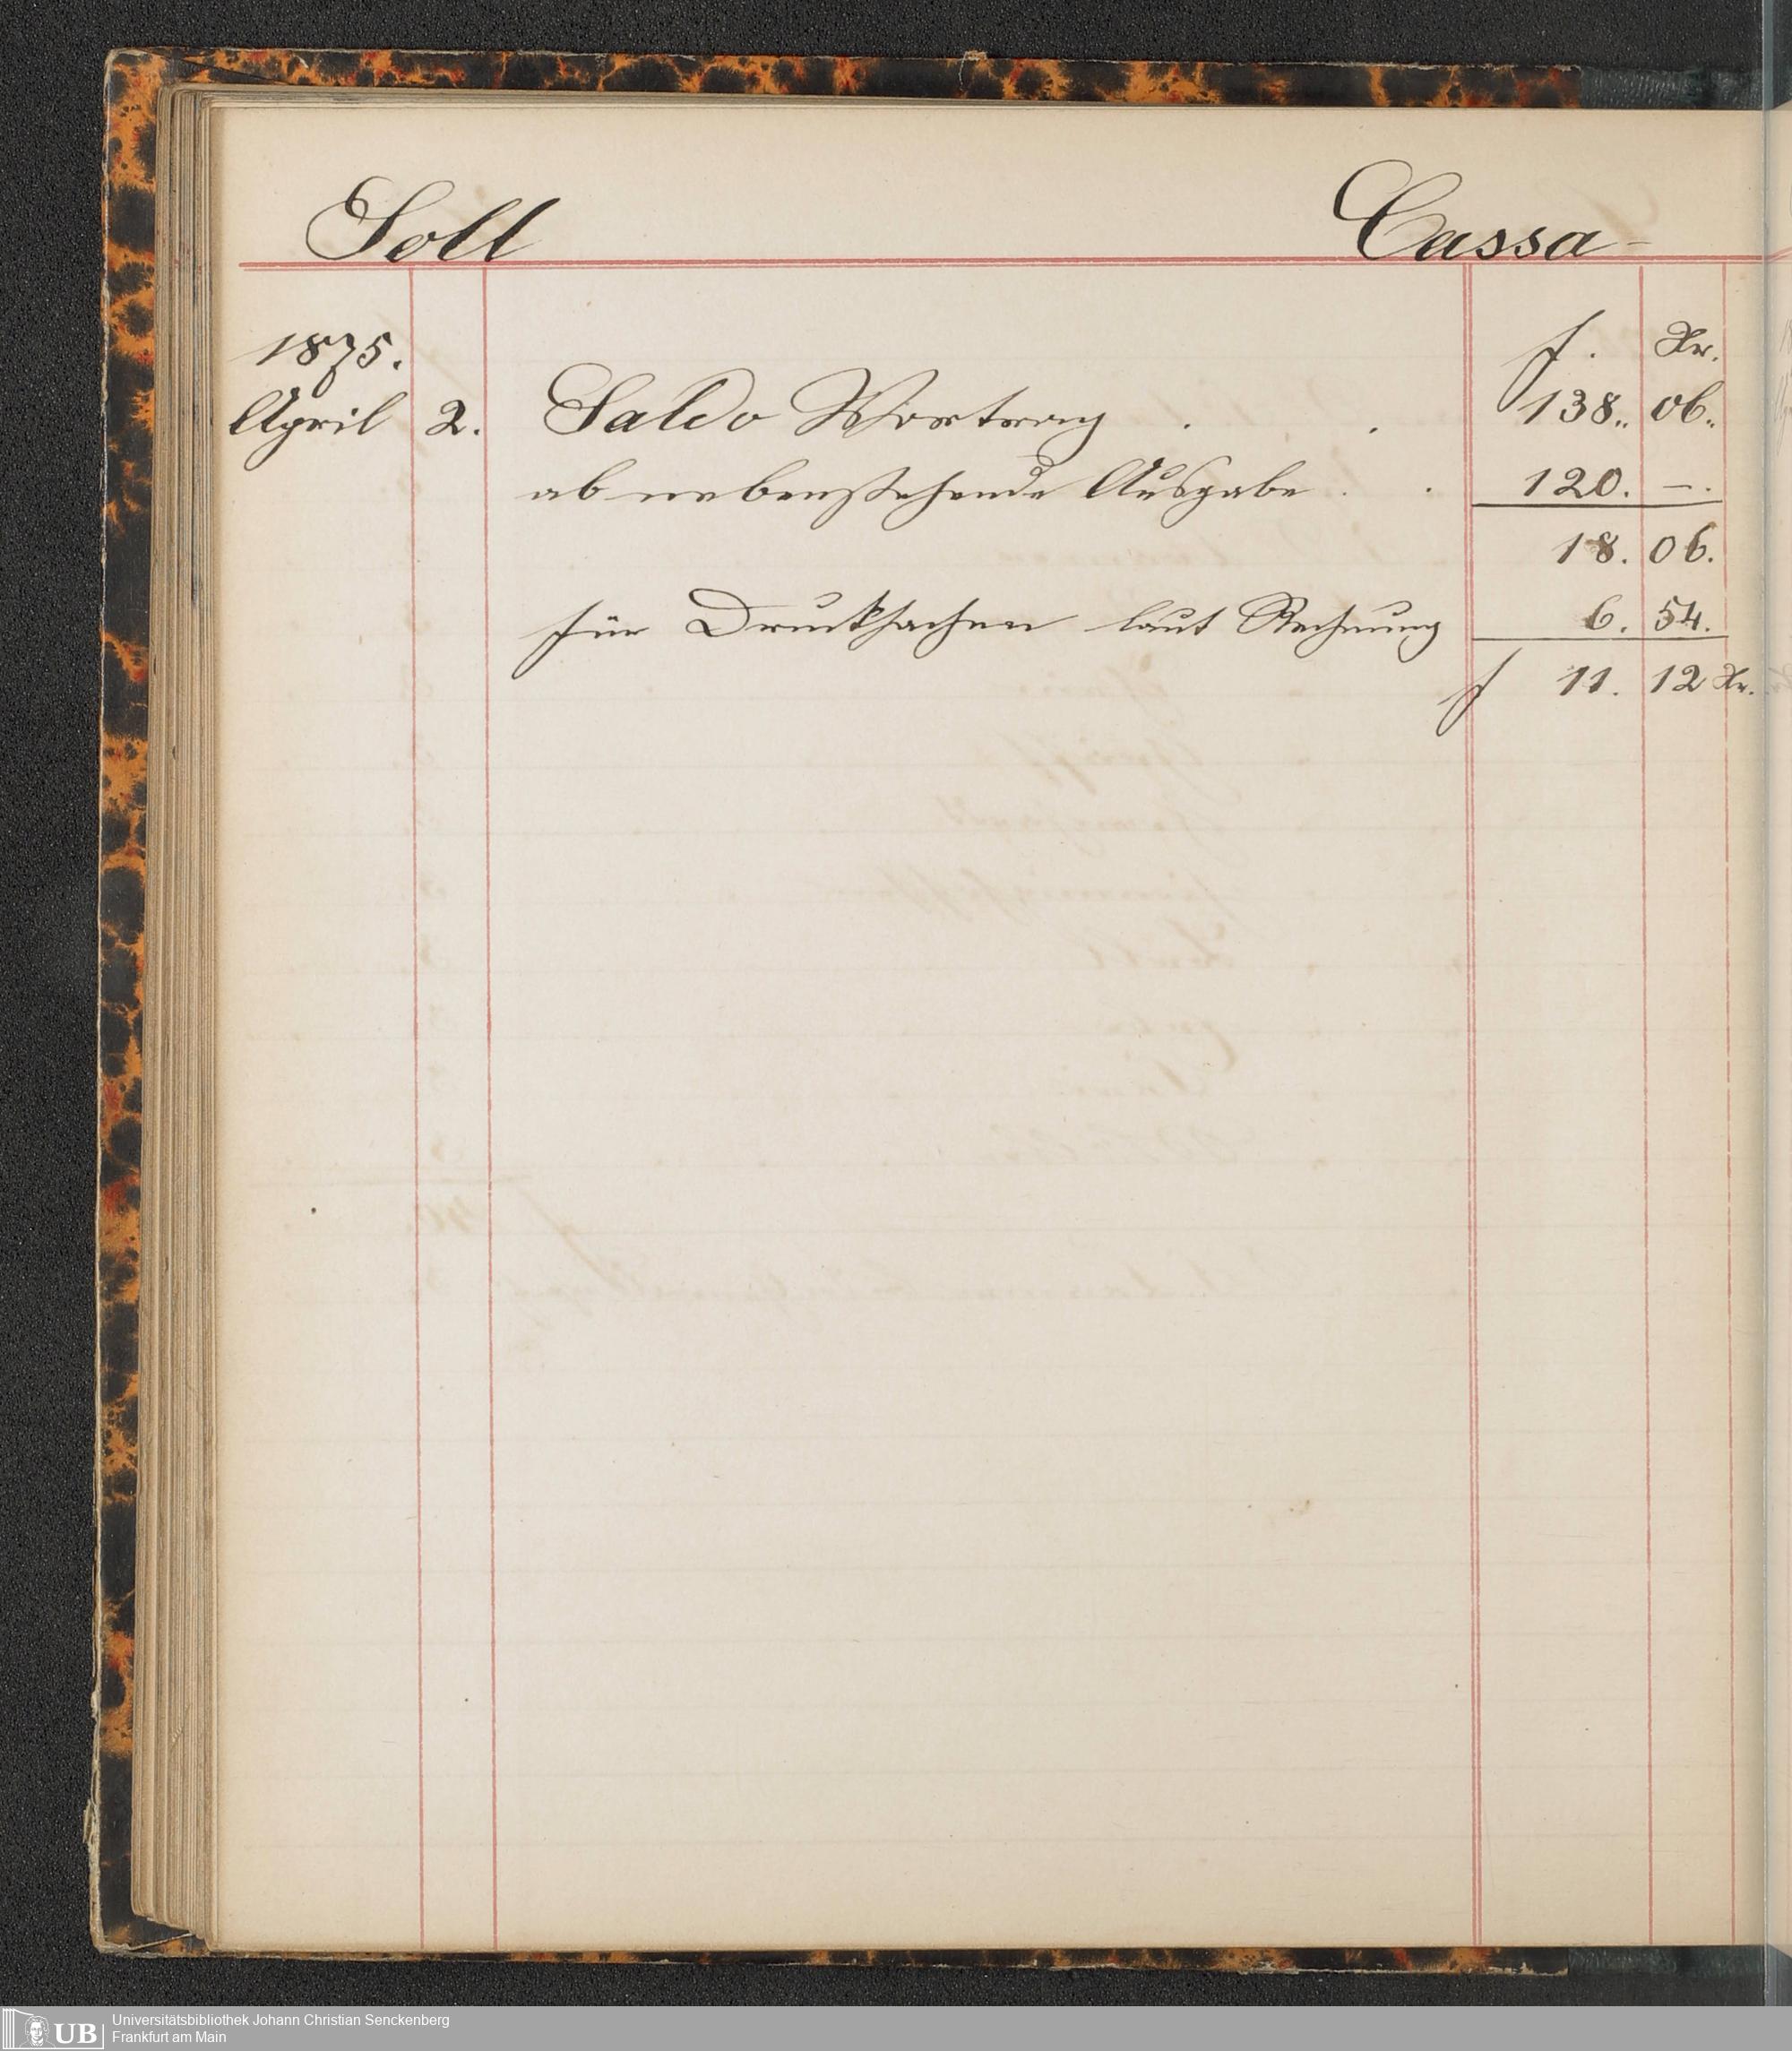 Soll Cassa-
1875. f. Xr.
April 2. Saldo Vortrag . . 138.. 06..
ab nebenstehende Ausgabe . . 120. –.
18. 06.
für Drucksachen laut Rechnung 6. 54.
f 11. 12 Xr.
UB Universitätsbibliothek Johann Christian Senckenberg
Frankfurt am Main